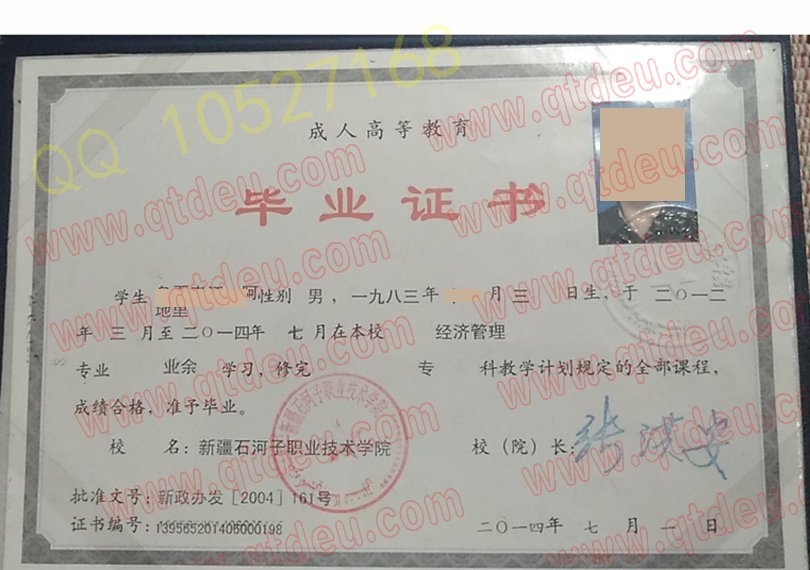 QQ 10527168
www.qtdeu.com
www.qtdeu.com
www.qtdeu.com
www.qtdeu.com
www.qtdeu.com
www.qtdeu.com
成人高等教育
毕业证书
学生 阿 性别 男，一九八三年 月三 日生，于二〇一二
地里
年 三 月至二〇一四年 七 月在本校 经济管理
专业 业余 学习，修完 专 科教学计划规定的全部课程，
成绩合格，准予毕业。
校 名：新疆石河子职业技术学院 校（院）长：
新疆石河子职业技术学院
批准文号：新政办发［2004］161号
证书编号：139565201406000198 二〇一四年 七 月 一 日